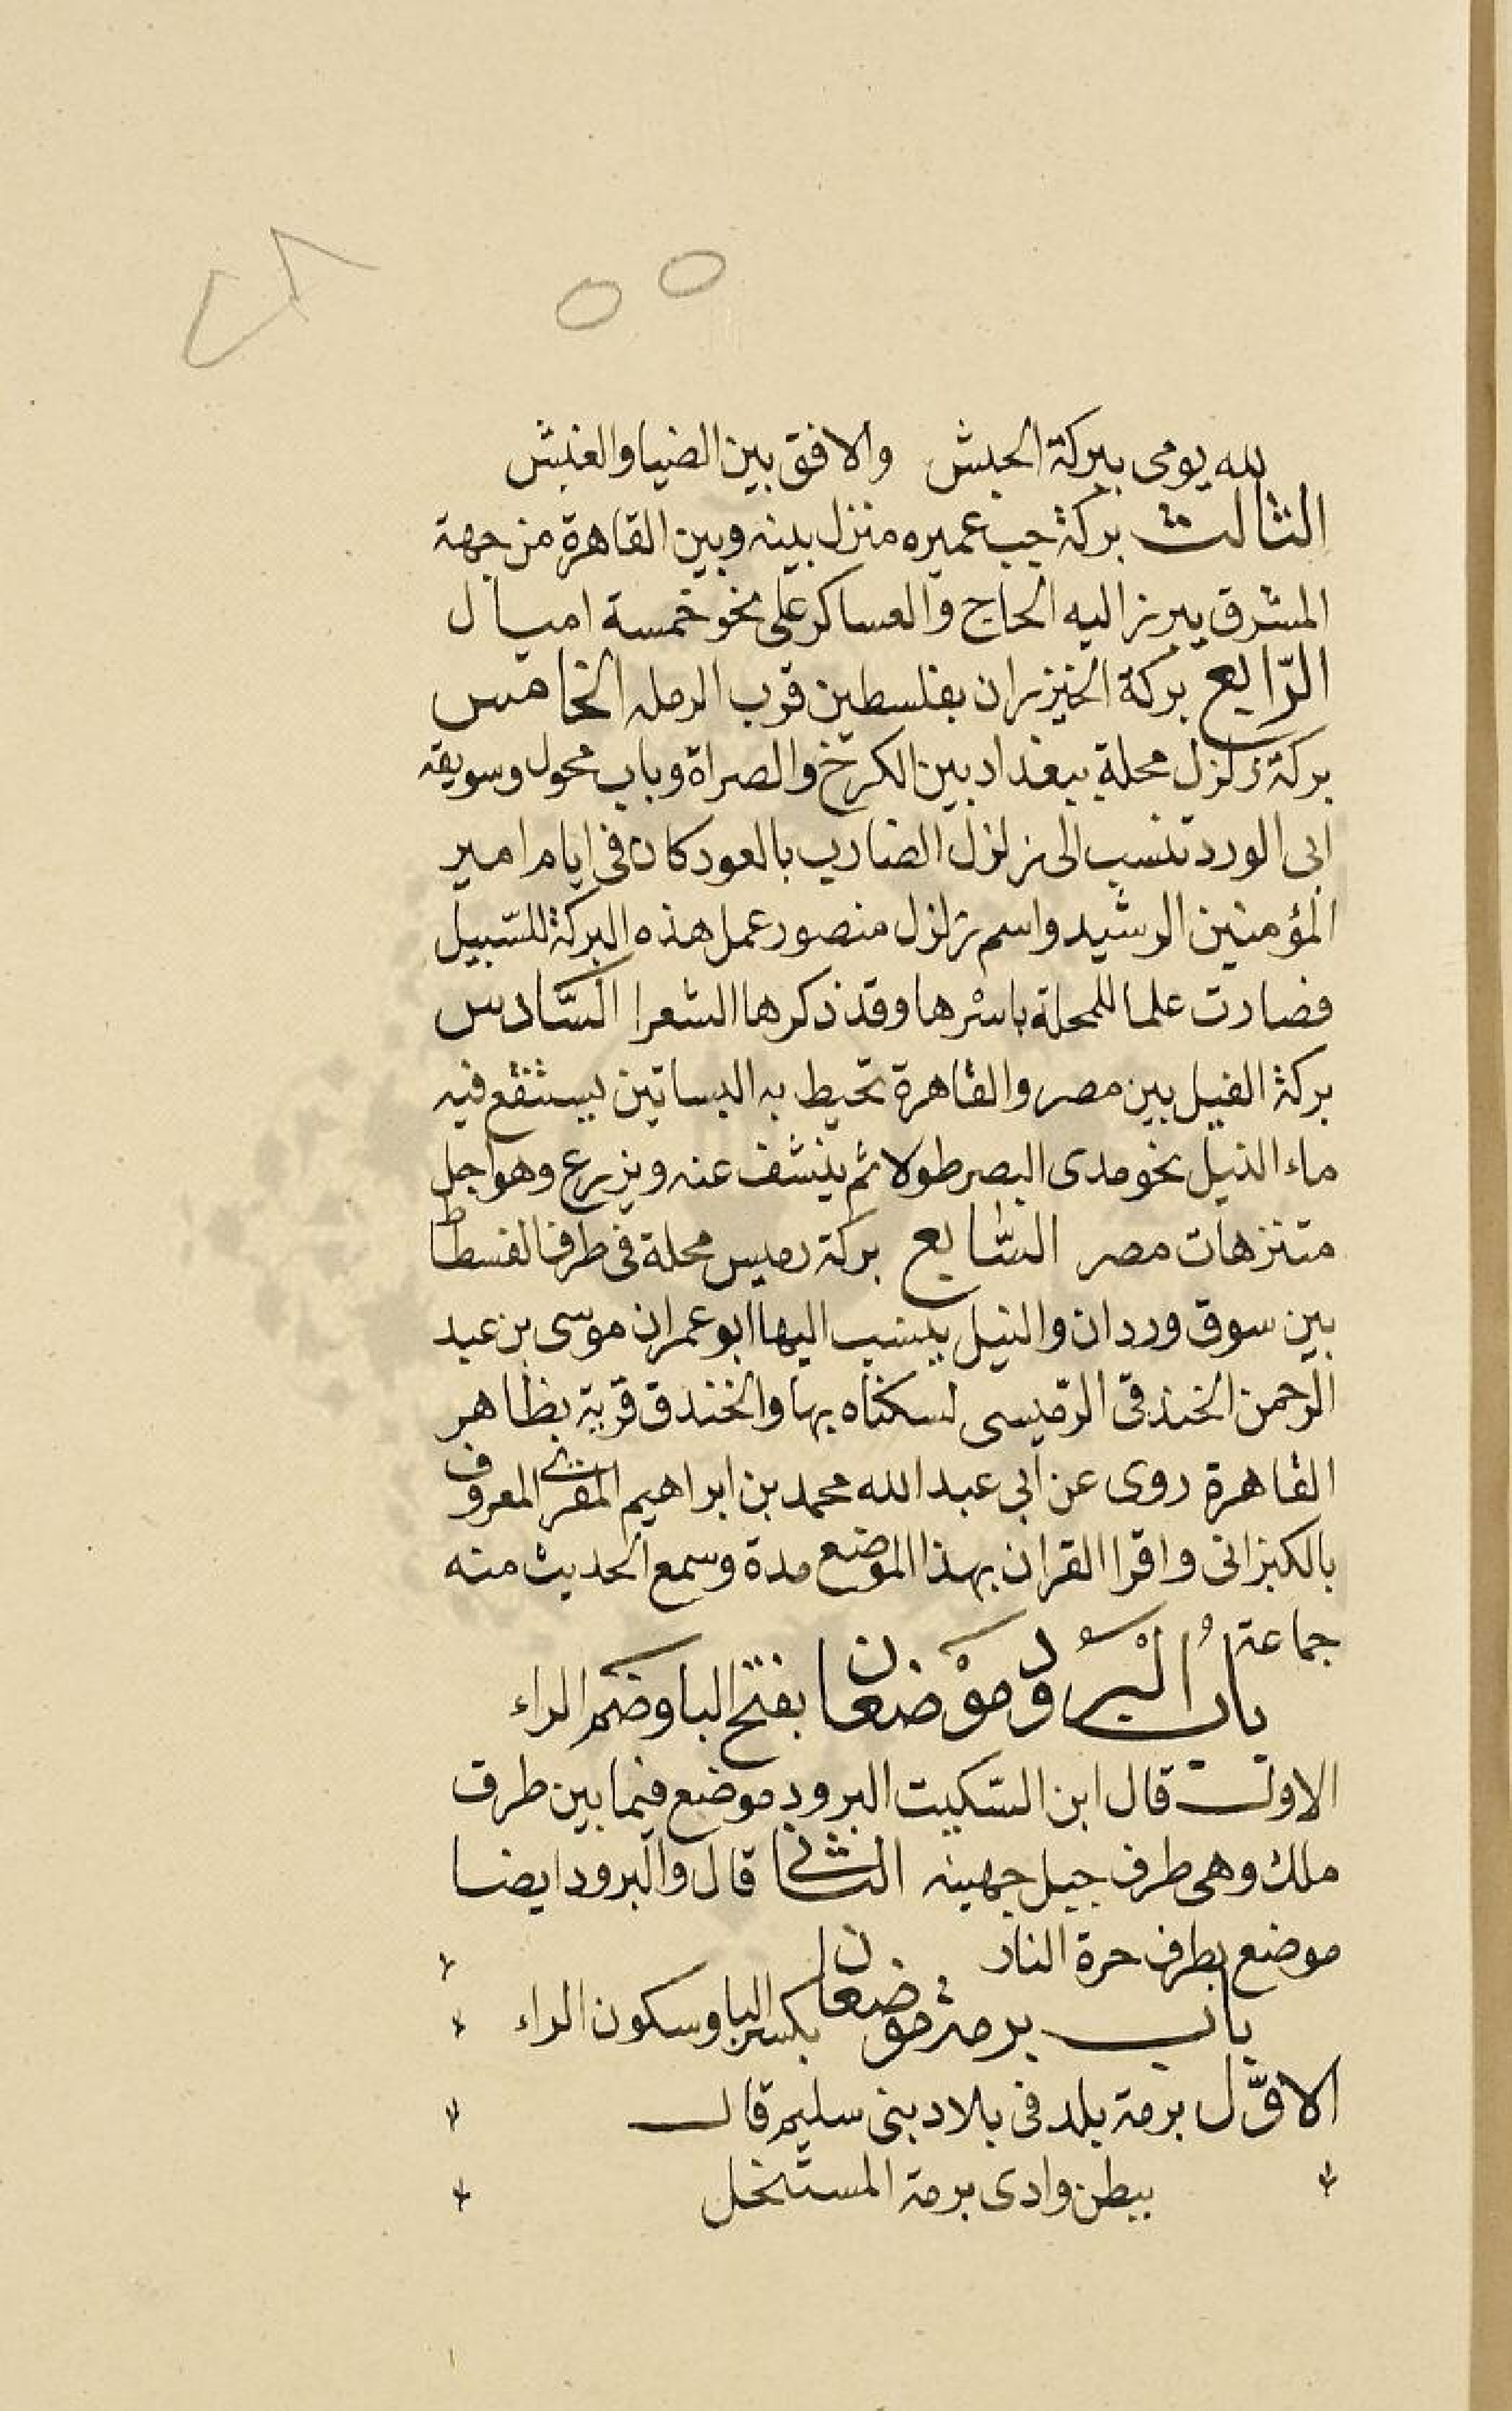 لله يومى ببركة الحبش والافق بين الضيا والغبش
الثالث بركة جب عميره منزل بينه وبين القاهرة من جهة
المشرق يبرز اليه الحاج والعساكر على نحو خمسة اميال
الرّابع بركة الخيزران بفلسطين قرب الرمله الخامس
بركة زلزل محلة ببغداد بين الكرخ والصراة وباب محول وسويقه
ابى الورد تنسب الى زلزل الضارب بالعود كان فى ايام امير
المؤمنين الرشيد واسم زلزل منصور عمل هذه البركة للسّبيل
فصارت علما للمحلة باسْرها وقد ذكرها الشعرا السّادس
بركة الفيل بين مصر والقاهرة تحيط به البساتين يستنقع فيه
ماء النيل نحو مدى البصر طولا ثم ينشف عنه ويزرع وهو اجل
متنزهات مصر السّابع بركة رميس محلة فى طرف الفسطاط
بين سوق وردان والنيل ينسب اليها ابو عمران موسى بن عبد
الرحمن الخندقى الرّميسى لسكناه بها والخندق قرية بظاهر
القاهرة روى عن ابى عبد الله محمد بن ابراهيم المقرئ المعروف
بالكيزانى واقرا القران بهذا الموضع مدة وسمع الحديث منه
جماعة
بابُ الْبَرُود موْضعان بفتح البا وضم الراء
الاول قال ابن السّكيت البرود موضع فيما بين طرف
ملك وهى طرف جبل جهينه الثانى قال والبرود ايضا
موضع بطرف حرة النار
باب برمة موضعان بكسر البا وسكون الراء
الاوّل برمة بلد فى بلاد بنى سليم قال
ببطن وادى برمة المستنخل